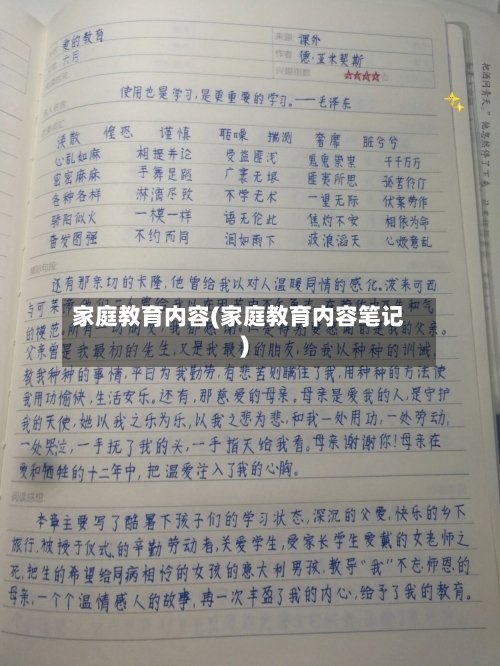 爱的教育
来源 课外
六月
作者 德·亚米契斯
兴趣指数 ★★★★☆
使用也是学习,是更重要的学习。——毛泽东
涣散 惶恐 谨慎 聒噪 揣测 奢靡 脏兮兮
心乱如麻 相提并论 受益匪浅 鬼鬼祟祟 千千万万
密密麻麻 手舞足蹈 广袤无垠 匪夷所思 孤苦伶仃
各种各样 淋漓尽致 不学无术 一望无际 伏案劳作
骄阳似火 一模一样 语无伦比 焦灼不安 相依为命
奋发图强 不约而同 泪如雨下 波浪滔天 心烦意乱
还有那亲切的卡隆,他曾给我以对人温暖同情的感化。泼来可西
与可莱谛
家庭教育内容(家庭教育内容笔记
)
的模范
父亲。
父亲曾是我最初的先生,又是我最初的朋友,给我以种种的训诫,
教我种种的事情,平日为我勤劳,有悲苦则瞒住了我,用种种的方法使
我用功愉快,生活安乐。还有,那慈爱的母亲,母亲是爱我的人,是守护
我的天使,她以我之乐为乐,以我之悲为悲,和我一处用功,一处劳动,
一处哭泣,一手抚了我的头,一手指天给我看。母亲谢谢你!母亲在
爱和牺牲的十二年中,把温爱注入了我的心胸。
本章主要写了酷暑下孩子们的学习状态,深沉的父爱,快乐的乡下
旅行,被授于仪式的辛勤劳动者,关爱学生,受家长学生爱戴的女老师之
死,把生的希望给同病相怜的女孩的意大利男孩,教导“我”不忘师恩的
母亲,一个个温情感人的故事,再一次丰盈了我的内心,给予了我的教育。